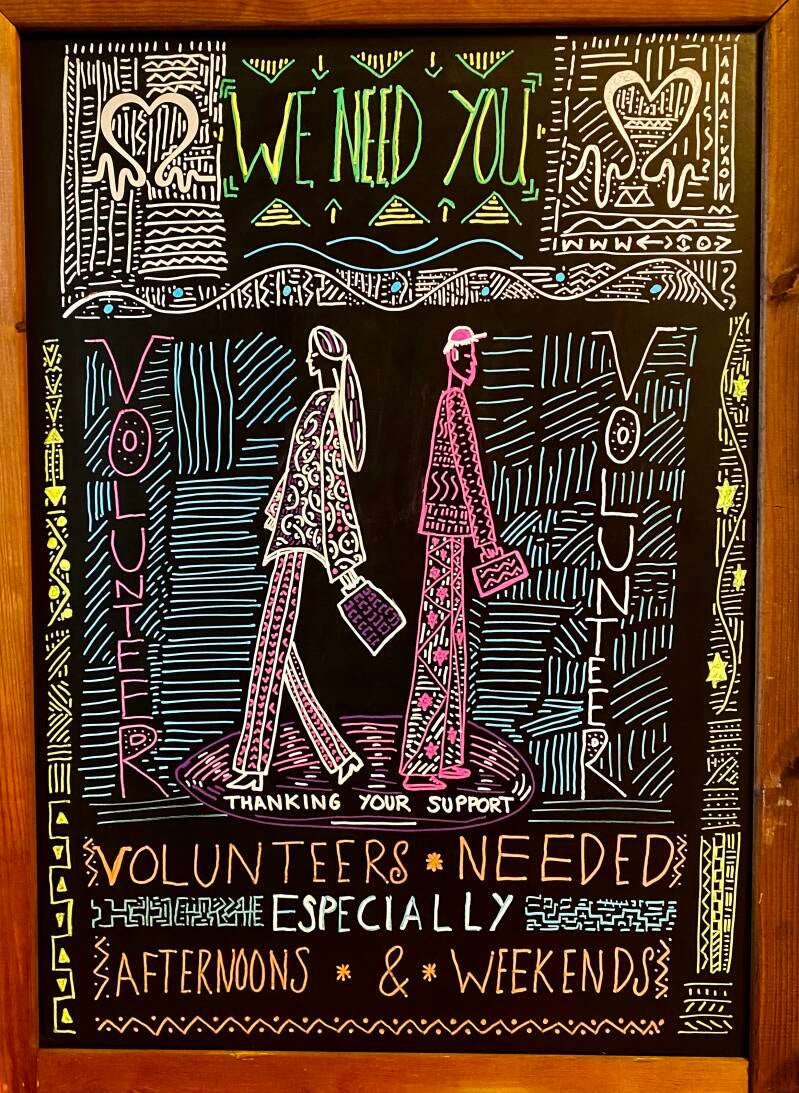 WE NEED YOU
VOLUNTEER
VOLUNTEER
THANKING YOUR SUPPORT
VOLUNTEERS * NEEDED
ESPECIALLY
AFTERNOONS * & * WEEKENDS